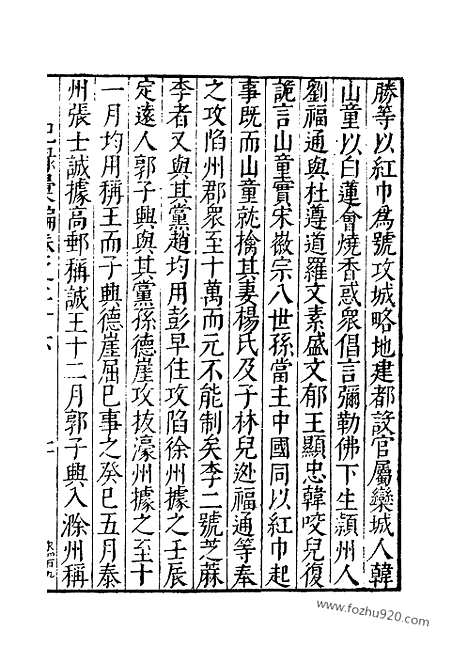 勝等以紅巾為號攻城略地建都設官屬欒城人韓
山童以白蓮會燒香惑衆倡言彌勒佛下生潁州人
劉福通與杜遵道羅文素盛文郁王顯忠韓咬兒復
詭言山童實宋徽宗八世孫當主中國同以紅巾起
事既而山童就擒其妻楊氏及子林兒逃福通等奉
之攻陷州郡衆至十萬而元不能制矣李二號芝蔴
李者又與其黨趙均用彭早住攻陷徐州據之壬辰
定遠人郭子興與其黨孫德崖攻拔濠州據之至十
一月均用稱王而子興德崖屈已事之癸巳五月泰
州張士誠據高郵稱誠王十二月郭子興入滁州稱
www.fozhu920.com